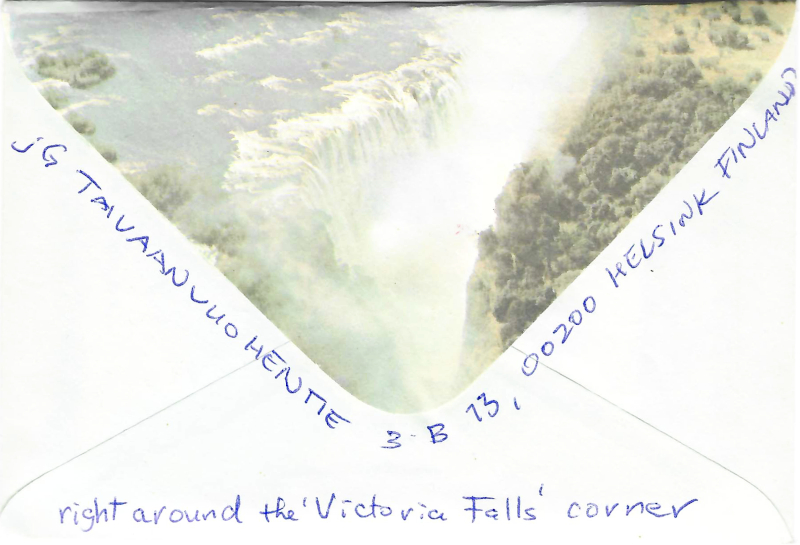 JG TAIVAANVUOHENTIE 3-B 13, 00200 HELSINK FINLAND
right around the 'Victoria Falls' corner